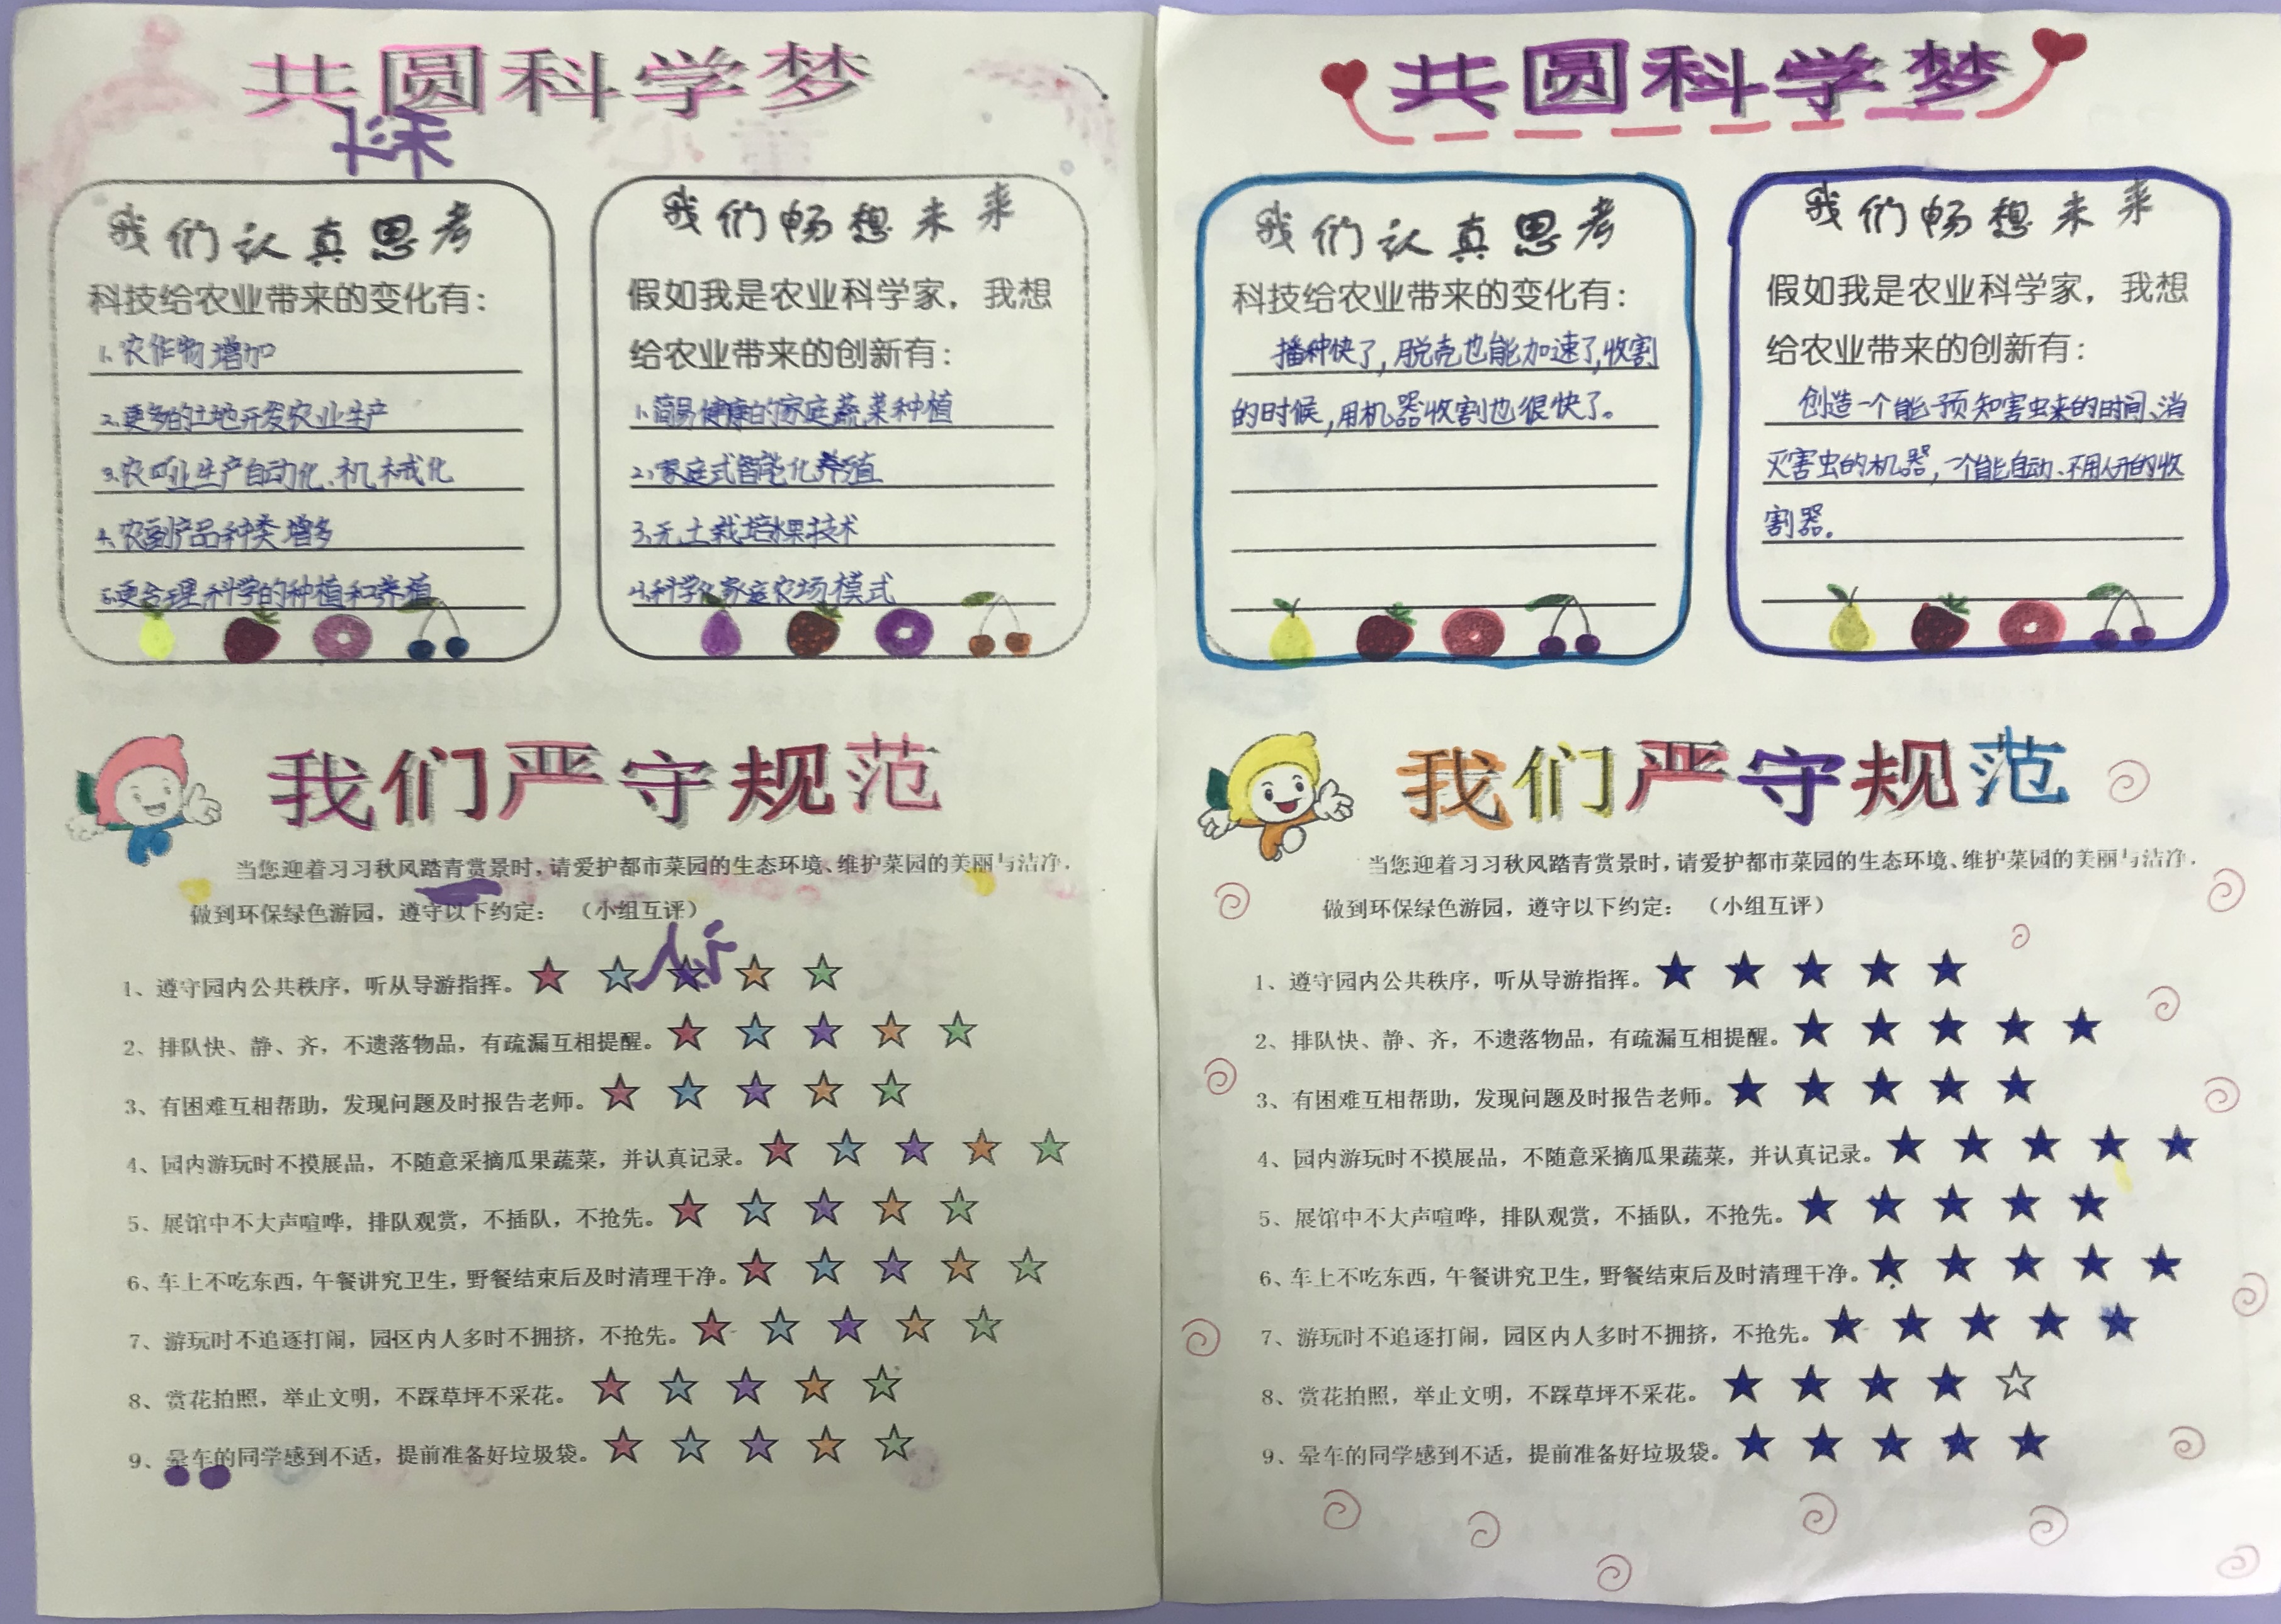 共圆科学梦
深
我们认真思考
科技给农业带来的变化有：
1、农作物增加
2、更多的土地开发农业生产
3、农业生产自动化、机械化
4、农副产品种类增多
5、更合理科学的种植和养植
我们畅想未来
假如我是农业科学家，我想
给农业带来的创新有：
1、简易健康的家庭蔬菜种植
2、家庭式智能化养殖
3、无土栽培水果技术
4、科学化家庭农场模式
我们严守规范
当您迎着习习秋风踏青赏景时，请爱护都市菜园的生态环境、维护菜园的美丽与洁净，
做到环保绿色游园，遵守以下约定： （小组互评）
1、遵守园内公共秩序，听从导游指挥。
2、排队快、静、齐，不遗落物品，有疏漏互相提醒。
3、有困难互相帮助，发现问题及时报告老师。
4、园内游玩时不摸展品，不随意采摘瓜果蔬菜，并认真记录。
5、展馆中不大声喧哗，排队观赏，不插队，不抢先。
6、车上不吃东西，午餐讲究卫生，野餐结束后及时清理干净。
7、游玩时不追逐打闹，园区内人多时不拥挤，不抢先。
8、赏花拍照，举止文明，不踩草坪不采花。
9、晕车的同学感到不适，提前准备好垃圾袋。
共圆科学梦
我们认真思考
科技给农业带来的变化有：
播种快了，脱壳也能加速了，收割
的时候，用机器收割也很快了。
我们畅想未来
假如我是农业科学家，我想
给农业带来的创新有：
创造一个能预知害虫来的时间、消
灭害虫的机器，一个能自动、不用人开的收
割器。
我们严守规范
当您迎着习习秋风踏青赏景时，请爱护都市菜园的生态环境、维护菜园的美丽与洁净，
做到环保绿色游园，遵守以下约定： （小组互评）
1、遵守园内公共秩序，听从导游指挥。
2、排队快、静、齐，不遗落物品，有疏漏互相提醒。
3、有困难互相帮助，发现问题及时报告老师。
4、园内游玩时不摸展品，不随意采摘瓜果蔬菜，并认真记录。
5、展馆中不大声喧哗，排队观赏，不插队，不抢先。
6、车上不吃东西，午餐讲究卫生，野餐结束后及时清理干净。
7、游玩时不追逐打闹，园区内人多时不拥挤，不抢先。
8、赏花拍照，举止文明，不踩草坪不采花。
9、晕车的同学感到不适，提前准备好垃圾袋。